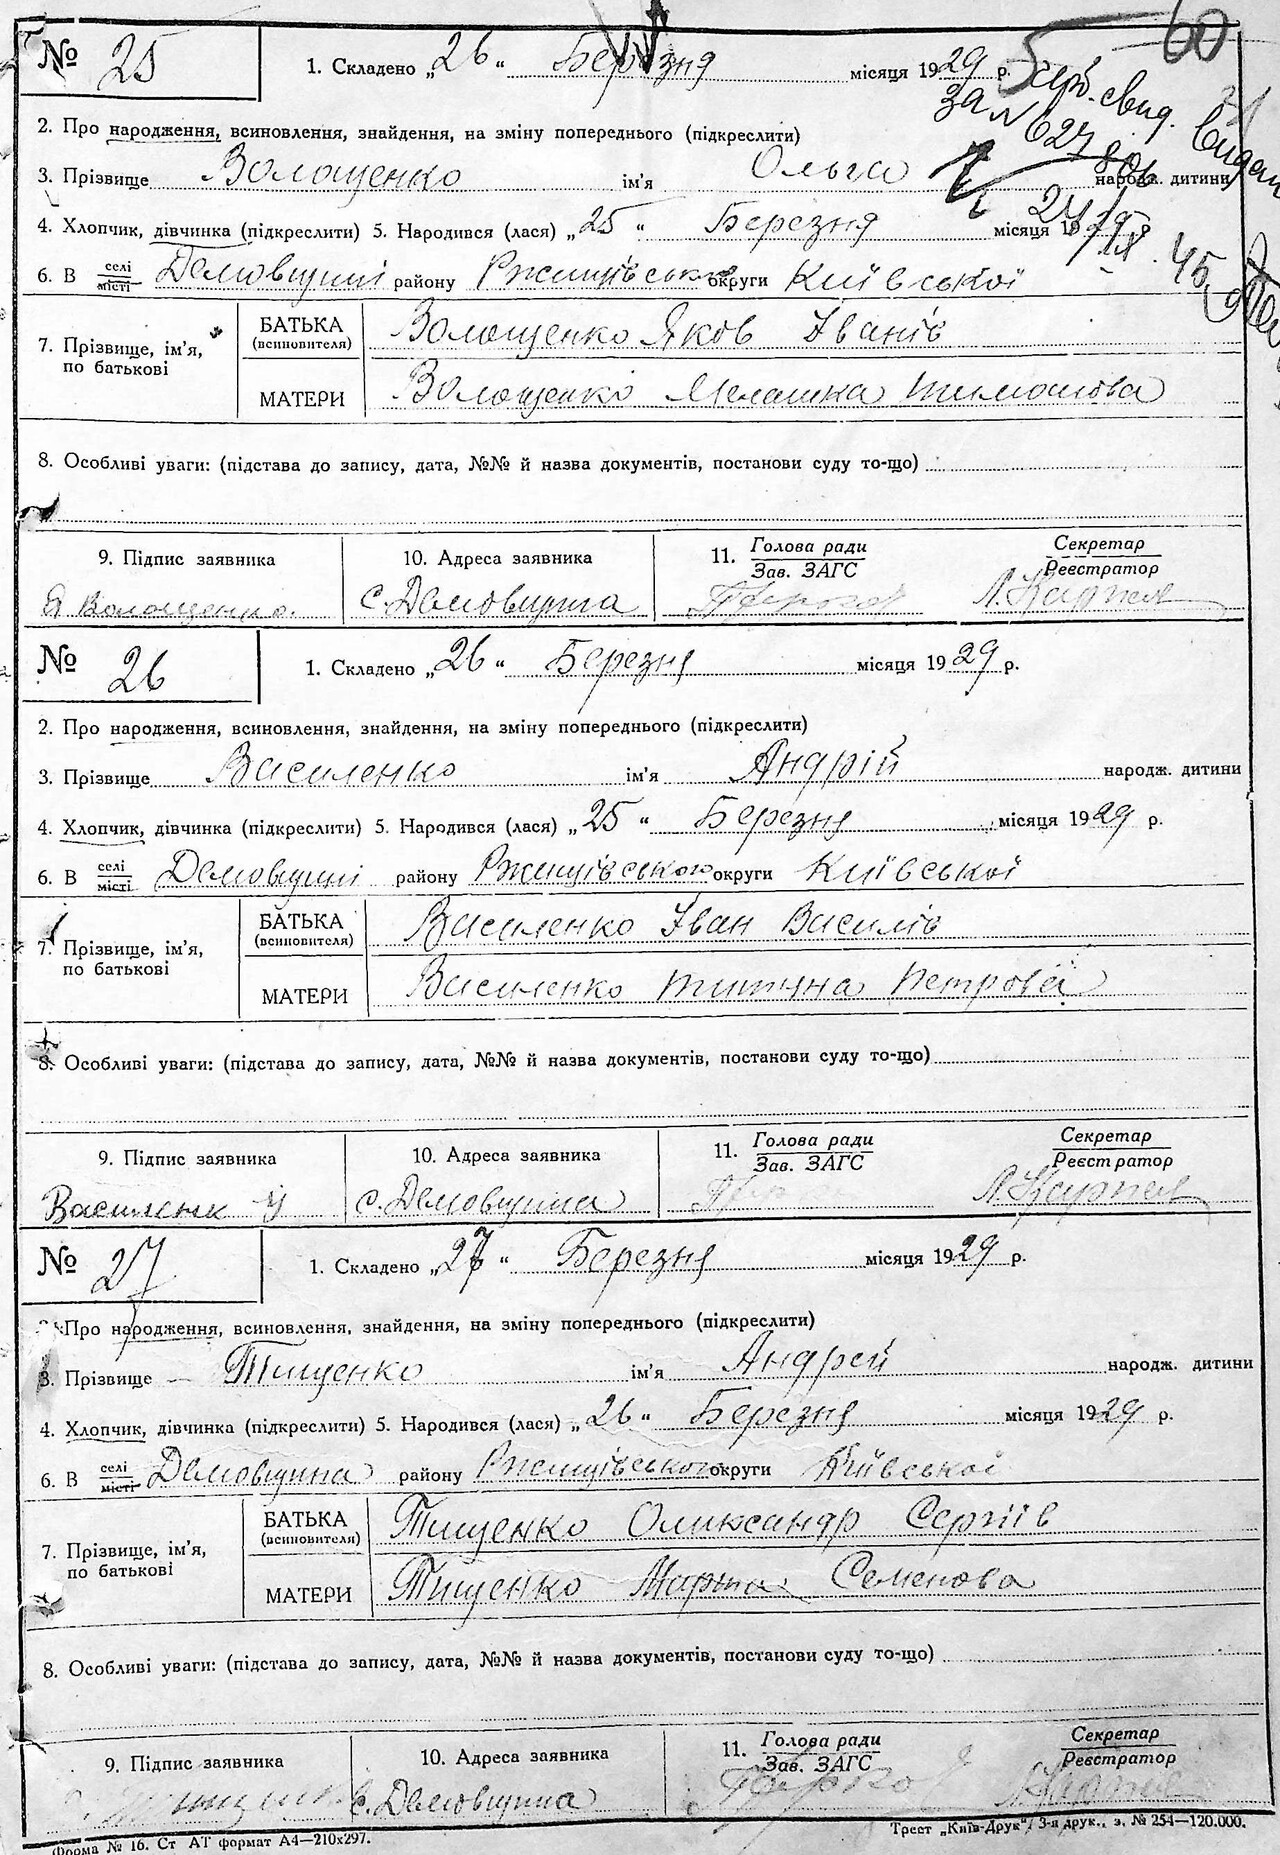 60
№ 25 1. Складено „26“ Березня місяця 1929 р.
2. Про народження, всиновлення, знайдення, на зміну попереднього (підкреслити)
за № 627
3. Прізвище Волощенко ім'я Ольга народж. дитини
4. Хлопчик, дівчинка (підкреслити) 5. Народився (лася) „25“ Березня місяця 1929 р.
6. В селі/місті Демовщині району Ржищівського округи Київської
7. Прізвище, ім'я, по батькові
БАТЬКА (всиновителя) Волощенко Яков Іванів
МАТЕРИ Волощенко Мелашка Тимошова
8. Особливі уваги: (підстава до запису, дата, №№ й назва документів, постанови суду то-що)
9. Підпис заявника 10. Адреса заявника 11. Голова ради / Зав. ЗАГС Секретар / Реєстратор
Я Волощенко. с. Демовщина
№ 26 1. Складено „26“ Березня місяця 1929 р.
2. Про народження, всиновлення, знайдення, на зміну попереднього (підкреслити)
3. Прізвище Василенко ім'я Андрій народж. дитини
4. Хлопчик, дівчинка (підкреслити) 5. Народився (лася) „25“ Березня місяця 1929 р.
6. В селі/місті Демовщині району Ржищівського округи Київської
7. Прізвище, ім'я, по батькові
БАТЬКА (всиновителя) Василенко Іван Василів
МАТЕРИ Василенко Титяна Петрова
8. Особливі уваги: (підстава до запису, дата, №№ й назва документів, постанови суду то-що)
9. Підпис заявника 10. Адреса заявника 11. Голова ради / Зав. ЗАГС Секретар / Реєстратор
Василенк с. Демовщина
№ 27 1. Складено „27“ Березня місяця 1929 р.
2. Про народження, всиновлення, знайдення, на зміну попереднього (підкреслити)
3. Прізвище Тищенко ім'я Андрей народж. дитини
4. Хлопчик, дівчинка (підкреслити) 5. Народився (лася) „26“ Березня місяця 1929 р.
6. В селі/місті Демовщина району Ржищівського округи Київської
7. Прізвище, ім'я, по батькові
БАТЬКА (всиновителя) Тищенко Олександр Сергіїв
МАТЕРИ Тищенко Марта Семенова
8. Особливі уваги: (підстава до запису, дата, №№ й назва документів, постанови суду то-що)
9. Підпис заявника 10. Адреса заявника 11. Голова ради / Зав. ЗАГС Секретар / Реєстратор
с. Демовщина
Форма № 16. Ст АТ формат А4—210х297. Трест „Київ-Друк“, 3-я друк., з. № 254—120.000.